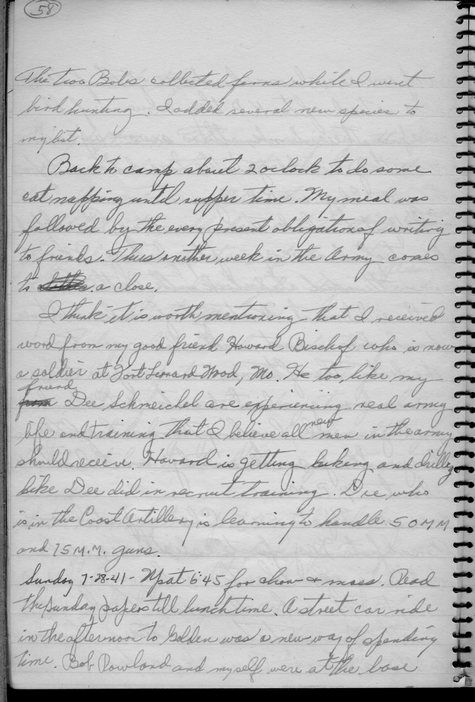 58
The two Bobs collected ferns while I went
bird hunting. I added several new species to
my list.
Back to camp about 2 oclock to do some
cat napping until supper time. My meal was
followed by the every present obligation of writing
to friends. Thus another week in the Army comes
to a close.
I think it is worth mentioning that I received
word from my good friend Howard Bischof who is now
a soldier at Fort Leonard Wood, Mo. He too, like my
friend
Dee Schneichel are experiencing real army
life and training that I believe all new men in the army
should receive. Howard is getting and drilling
like Dee did in recruit training. Dee, who
is in the Coast Artillery, is learning to handle 50 MM
and 75 M.M. guns.
Sunday 7-28-41 - Up at 6:45 for chow & mass. Read
the Sunday papers till lunch time. A street car ride
in the afternoon to Golden was a new way of spending
time. Bob Rowland and myself were at the base